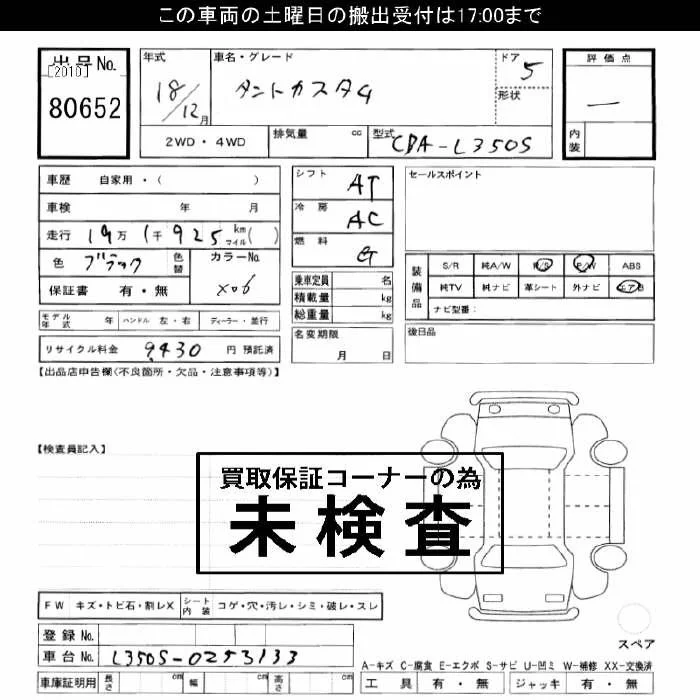 この車両の土曜日の搬出受付は17:00まで
出品No.
[2010]
80652
年式
18/12月
車名・グレード
タントカスタム
ドア 5
形状
評価点
—
内装
2WD・4WD
排気量 cc
型式 CBA-L350S
車歴 自家用・( )
車検 年 月
走行 19万1千925 km マイル( )
色 ブラック
色替
カラーNo. X06
保証書 有・無
シフト AT
冷房 AC
燃料 G
乗車定員 名
積載量 kg
総重量 kg
セールスポイント
装備品
S/R 純A/W P/S P/W ABS
純TV 純ナビ 革シート 外ナビ エアB
ナビ型番:
モデル年式 年 ハンドル 左・右 ディーラー・並行
リサイクル料金 9,430 円 預託済
名変期限 月 日
後日品
【出品店申告欄(不良箇所・欠品・注意事項等)】
【検査員記入】
買取保証コーナーの為
未検査
FW キズ・トビ石・割レX
シート内装 コゲ・穴・汚レ・シミ・破レ・スレ
登録No.
車台No. L350S-0253133
車庫証明用 長さ cm 幅 cm 高さ cm
スペア
A-キズ C-腐食 E-エクボ S-サビ U-凹ミ W-補修 XX-交換済
工具 有・無 ジャッキ 有・無